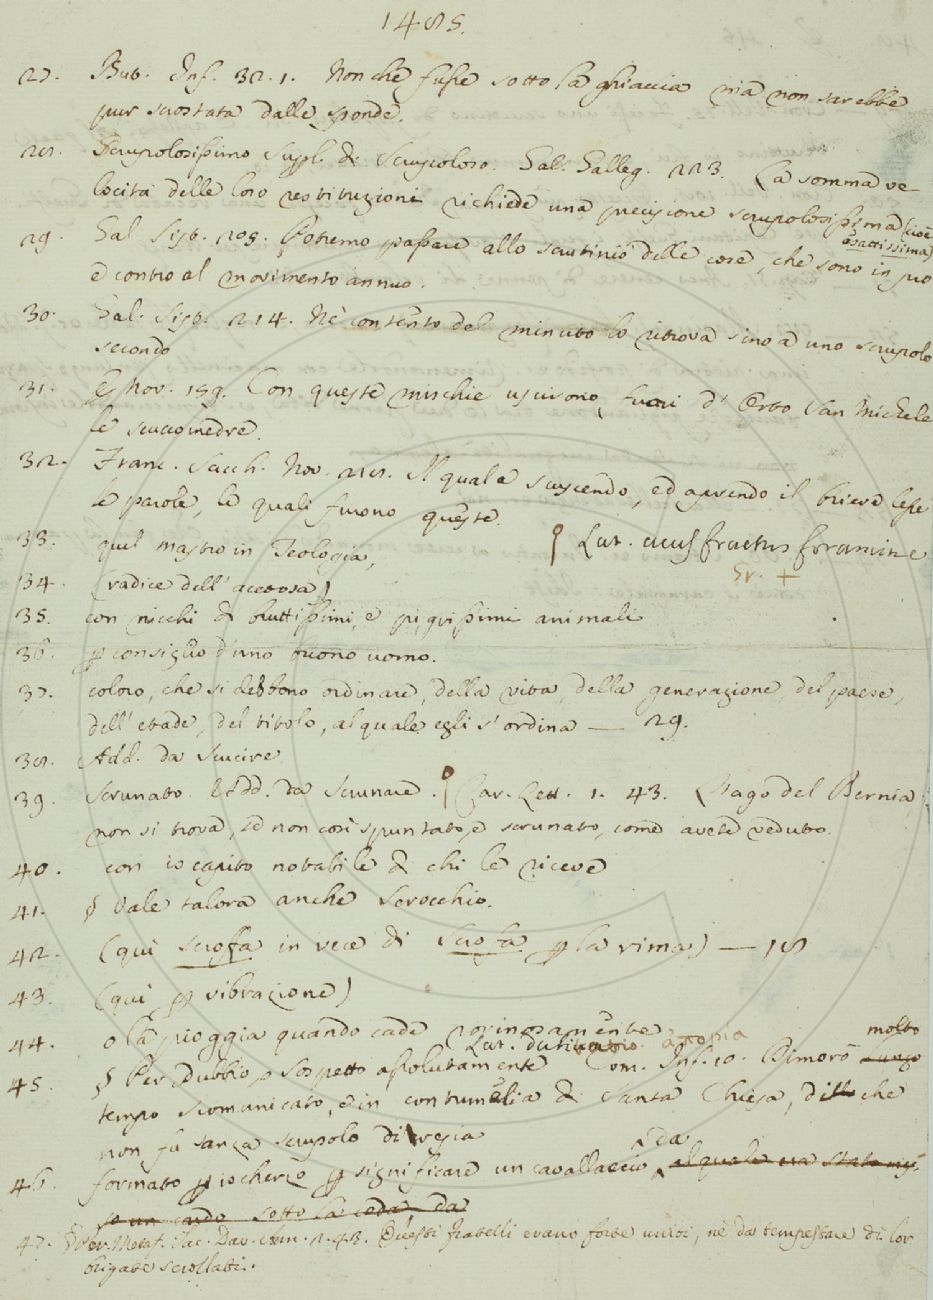 1485.
27. But. Inf. 32. 1. Non che fusse sotto la ghiaccia ma non sarebbe
pur scostata dalle sponde.
28. Scrupolosissimo Supl. di Scrupoloso. Gal. Galleg. 223. La somma ve
locità delle loro restituzioni richiede una precisione scrupolosissima (cioè
esattissima)
29. Gal Sist. 209. Potremo passare allo scrutinio delle cose, che sono in pro
e contro al movimento annuo.
30. Gal. Sist. 214. Nè contento del minuto lo ritrova sino a uno scrupolo
secondo
31. E Nov. 159. Con queste mischie uscirono fuori d' Orto San Michele
le scuccomedre.
32. Franc. Sacch. Nov. 218. Il quale scucendo, ed aprendo il brieve lesse
le parole, le quali furono queste.
33. quel mastro in Teologia, § Lat. acus fractus foramine
Gr. +
34. (radice dell' acetosa)
35. con nicchi di bruttissimi, e pigrissimi animali
36. p consiglio d'uno buono uomo.
37. coloro, che si debbono ordinare, della vita, della generazione, del paese,
dell' etade, del titolo, al quale egli s' ordina — 29.
38. Add. da Scucire.
39. Scrunato. Add. da Scrunare. § Car. Lett. 1. 43. L'ago del Bernia,
non si trova, se non così spuntato, e scrunato, come avete veduto.
40. con iscapito notabile di chi le riceve
41. § Vale talora anche Scrocchio.
42. (qui scroffa in vece di scrofa p la rima) — 18
43. (qui p vibrazione)
44. o la pioggia quando cade rovinosamente
45. § Per Dubbio, o Sospetto assolutamente Lat. dubitatio. Com. Inf. 10. Dimorò molto
tempo scomunicato, e in contumelia di Santa Chiesa, che
non fu sanza scrupolo di resia
46. formato p ischerzo p significare un cavallaccio, da al quale era stato mes
so un cardo sotto la coda, da
47. Per Metaf. Tac. Dav. 2. 43. Questi fratelli erano forte uniti, nè da tempestare di lor
brigate scrollati.